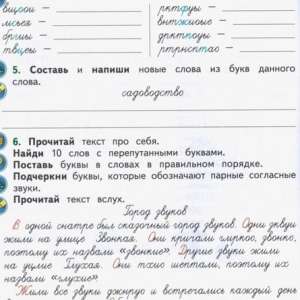 вщрои –
рктфуы –
мсвея –
внтжиоые –
бргиы –
дрктпоуы –
твцеы –
ртрнспатао –
5. Составь и напиши новые слова из букв данного
слова.
садоводство
6. Прочитай текст про себя.
Найди 10 слов с перепутанными буквами.
Поставь буквы в словах в правильном порядке.
Подчеркни буквы, которые обозначают парные согласные
звуки.
Прочитай текст вслух.
Город звуков
В одной снатре был сказочный город звуков. Одни зквуи
жили на улице Звонкая. Они кричали гмрко, звонко,
поэтому их назвали «звонкие». Другие звуки жили
на уцлие Глухая. Они тхио шептали, поэтому их
назвали «глухие».
Жили все звуки джнруо и встречались каждый день